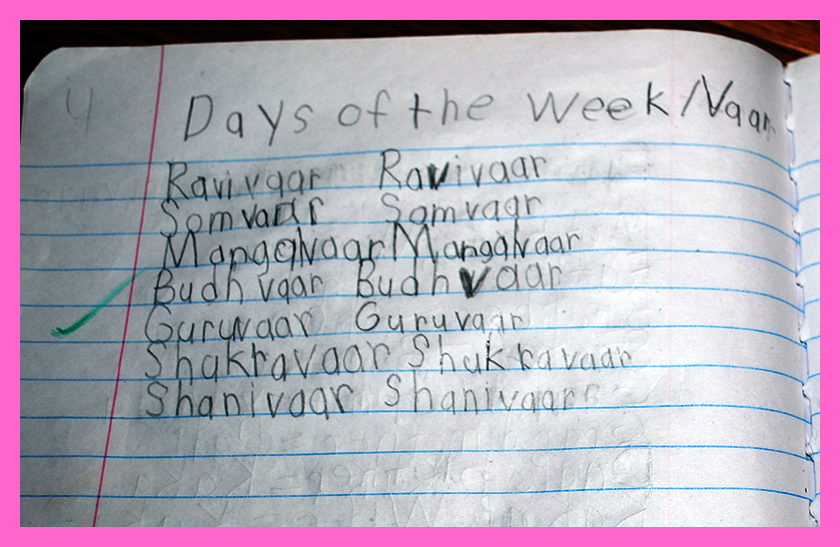 4 Days of the Week/Vaar
Ravivaar Ravivaar
Somvaar Somvaar
Mangalvaar Mangalvaar
Budhvaar Budhvaar
Guruvaar Guruvaar
Shakravaar Shukravaar
Shanivaar Shanivaar